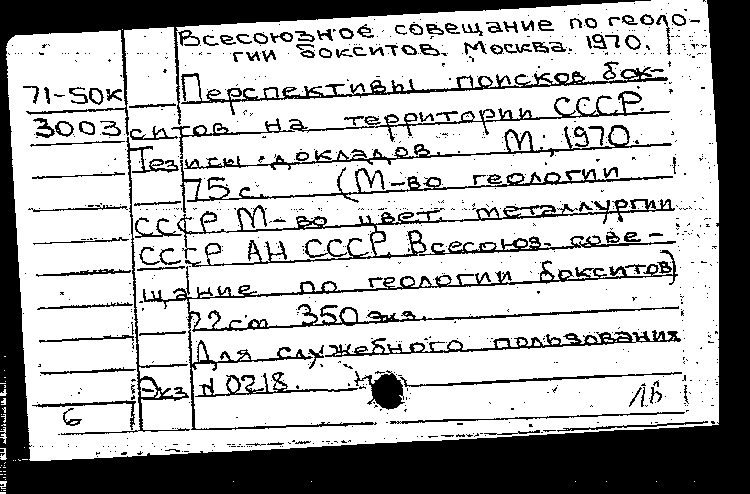 Всесоюзное совещание по геоло-
гии бокситов. Москва. 1970.
71-50к Перспективы поисков бок-
3003 ситов на территории СССР.
Тезисы докладов. М., 1970.
75 с. (М-во геологии
СССР. М-во цвет. металлургии
СССР. АН СССР. Всесоюз. сове-
щание по геологии бокситов)
22 см 350 экз.
Для служебного пользования
Экз N 0218.
6 ЛВ